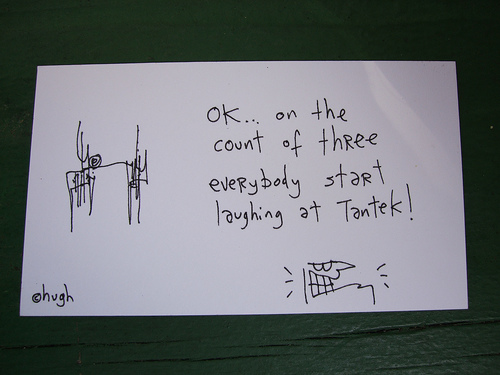 OK... on the
count of three
everybody start
laughing at Tantek!
©hugh